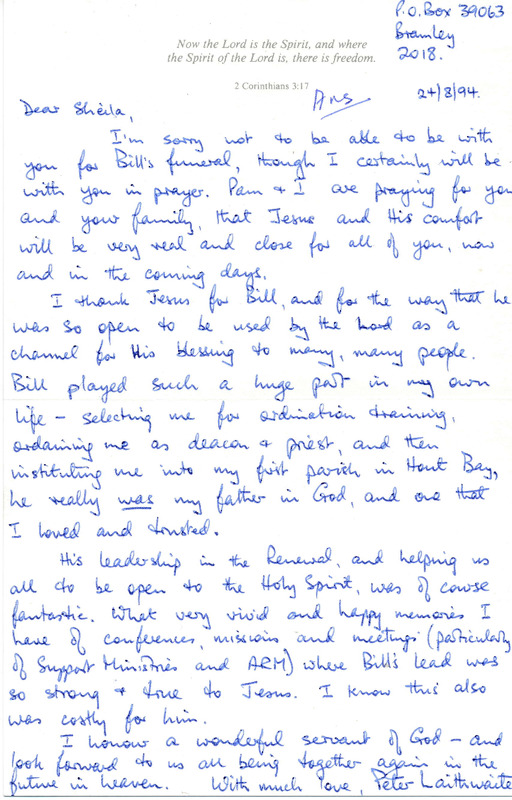 P.O. Box 39063
Bramley
2018.
Now the Lord is the Spirit, and where
the Spirit of the Lord is, there is freedom.
2 Corinthians 3:17
Ans
24/8/94.
Dear Sheila,
I'm sorry not to be able to be with
you for Bill's funeral, though I certainly will be
with you in prayer. Pam & I are praying for you
and your family, that Jesus and His comfort
will be very real and close for all of you, now
and in the coming days.
I thank Jesus for Bill, and for the way that he
was so open to be used by the Lord as a
channel for His blessing to many, many people.
Bill played such a huge part in my own
life - selecting me for ordination training,
ordaining me as deacon & priest, and then
instituting me into my first parish in Hout Bay,
he really was my father in God, and one that
I loved and trusted.
His leadership in the Renewal, and helping us
all to be open to the Holy Spirit, was of course
fantastic. What very vivid and happy memories I
have of conferences, missions and meetings (particularly
of Support Ministries and ARM) where Bill's lead was
so strong & true to Jesus. I know this also
was costly for him.
I honour a wonderful servant of God - and
look forward to us all being together again in the
future in heaven. With much love, Peter Laithwaite